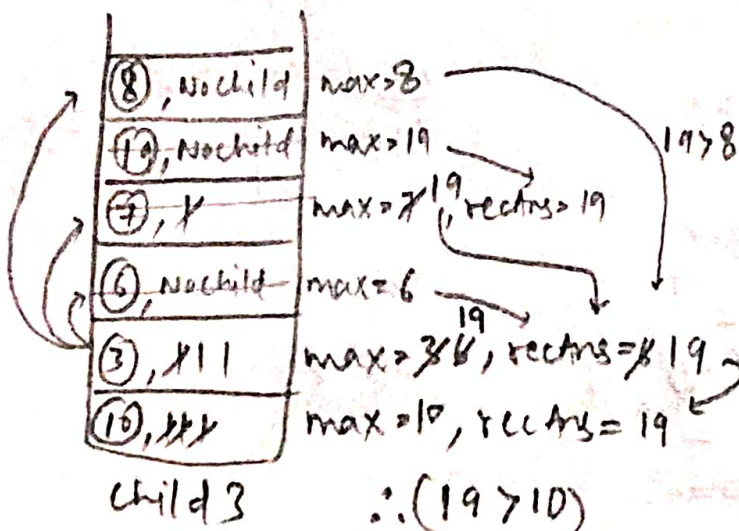 8, Nochild max=8
19, Nochild max=19 19>8
7, 1 max=7 19, recAns=19
6, Nochild max=6
3, 111 max=3 6 19, recAns=6 19
10, 111 max=10, recAns=19
child 3 ∴(19>10)